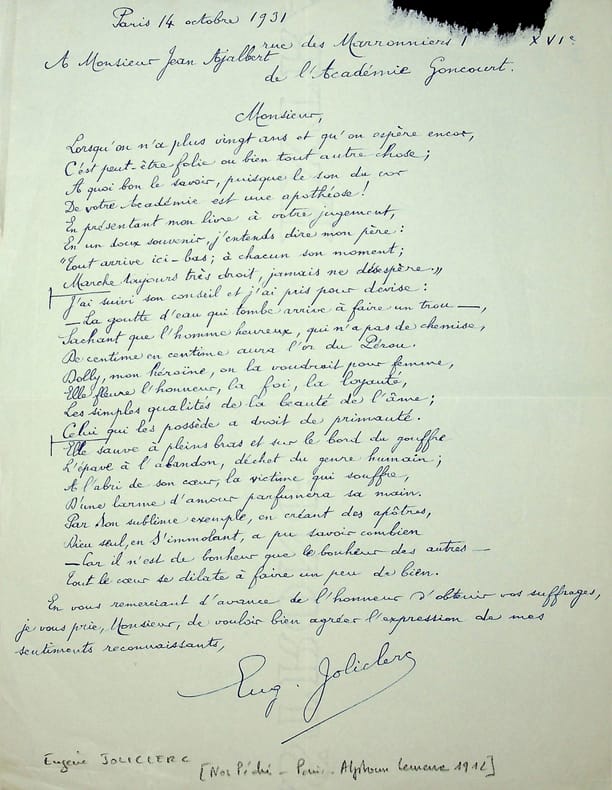 Paris 14 octobre 1931
rue des Marronniers 1 XVIe
A Monsieur Jean Ajalbert
de l'Académie Goncourt.
Monsieur,
Lorsqu'on n'a plus vingt ans et qu'on espère encor,
C'est peut-être folie ou bien tout autre chose;
A quoi bon le savoir, puisque le son du cor
De votre Académie est une apothéose!
En présentant mon livre à votre jugement,
En un doux souvenir, j'entends dire mon père:
"Tout arrive ici-bas; à chacun son moment;
Marche toujours très droit, jamais ne désespère."
J'ai suivi son conseil et j'ai pris pour devise:
— La goutte d'eau qui tombe arrive à faire un trou —,
Sachant que l'homme heureux, qui n'a pas de chemise,
De centime en centime aura l'or du Pérou.
Dolly, mon héroïne, on la voudrait pour femme,
Elle fleure l'honneur, la foi, la loyauté,
Les simples qualités de la beauté de l'âme;
Celui qui les possède a droit de primauté.
Elle sauve à pleins bras et sur le bord du gouffre
L'épave à l'abandon, déchet du genre humain;
A l'abri de son cœur, la victime qui souffre,
D'une larme d'amour parfumera sa main.
Par Son sublime exemple, en créant des apôtres,
Dieu seul, en S'immolant, a pu savoir combien
— Car il n'est de bonheur que le bonheur des autres —
Tout le cœur se dilate à faire un peu de bien.
En vous remerciant d'avance de l'honneur d'obtenir vos suffrages,
je vous prie, Monsieur, de vouloir bien agréer l'expression de mes
sentiments reconnaissants,
Eug. Joliclerc
Eugène JOLICLERC
[Nos Péché - Paris - Alphonse Lemerre 1912]